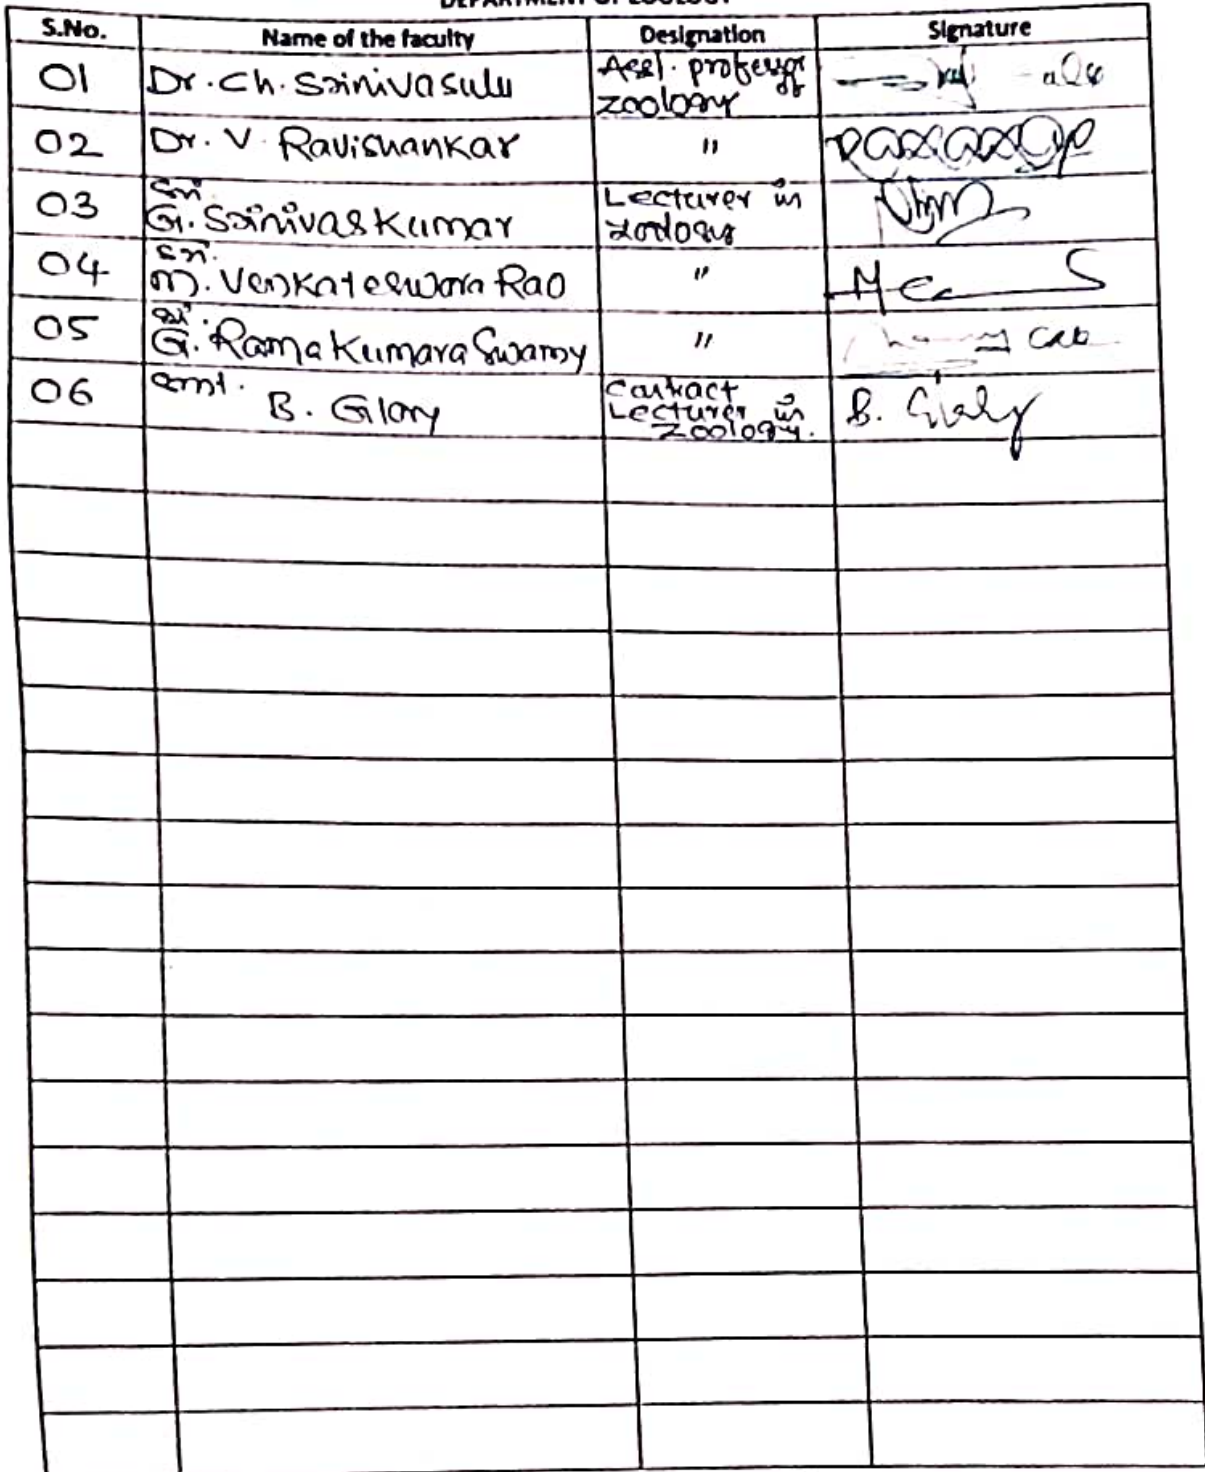 DEPARTMENT OF ZOOLOGY
S.No. Name of the faculty Designation Signature
01 Dr. Ch. Srinivasulu Asst. professor of
zoology
02 Dr. V. Ravishankar "
03 Sri. G. Srinivas Kumar Lecturer in
zoology
04 Sri. M. Venkateswara Rao "
05 Sri. G. Rama Kumara Swamy "
06 Smt. B. Glory Contract
Lecturer in
Zoology. B. Glory